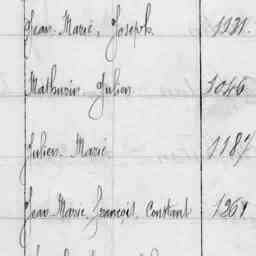 Jean Marie, Joseph. 1121.
Mathurin Julien 1046
Julien Marie 1187
Jean Marie François Constant 1261